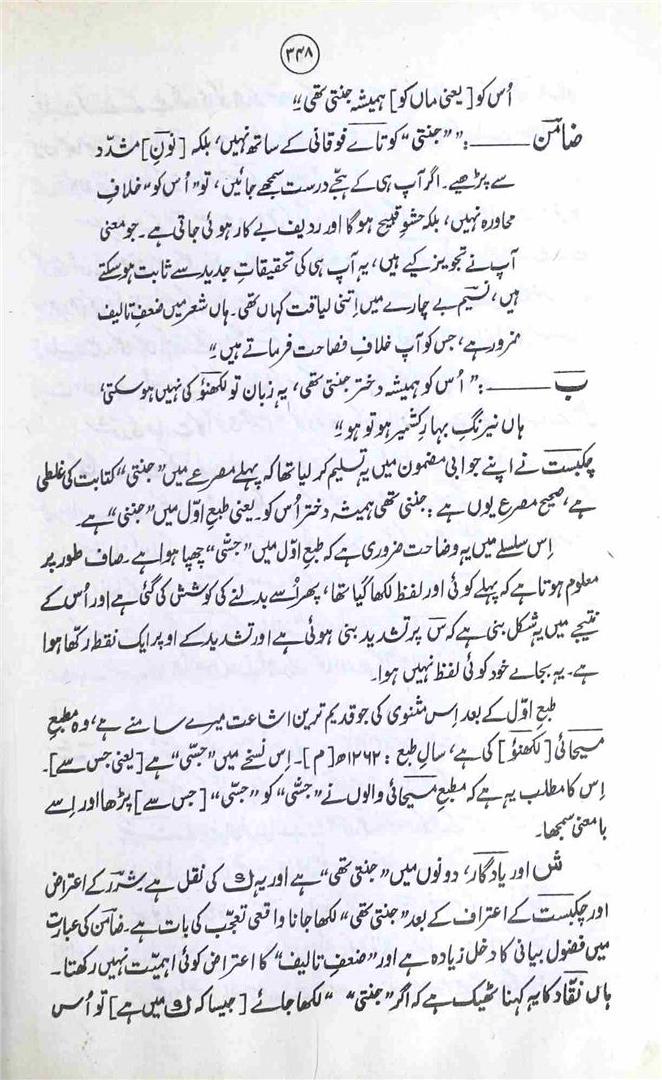 ۳۴۸
اُس کو [یعنی ماں کو] ہمیشہ جنتی تھی"
ضامنؔ ـــــــ :" "جنتی" کو تاے فوقانی کے ساتھ نہیں، بلکہ [نونِ] مشدّد
سے پڑھیے۔ اگر آپ ہی کے ہجّے درست سمجھے جائیں، تو "اُس کو" خلافِ
محاورہ نہیں، بلکہ حشوِ قبیح ہوگا اور ردیف بے کار ہوئی جاتی ہے۔ جو معنی
آپ نے تجویز کیے ہیں، یہ آپ ہی کی تحقیقاتِ جدید سے ثابت ہو سکتے
ہیں، نسیمؔ بے چارے میں اِتنی لیاقت کہاں تھی۔ ہاں شعر میں ضعفِ تالیف
ضرور ہے، جس کو آپ خلافِ فصاحت فرماتے ہیں"۔
ب ـــــــ :" اُس کو ہمیشہ دختر جنتی تھی، یہ زبان تو لکھنؤ کی نہیں ہو سکتی،
ہاں نیرنگِ بہارِ کشمیر ہو تو ہو"
چکبستؔ نے اپنے جوابی مضمون میں یہ تسلیم کر لیا تھا کہ پہلے مصرعے میں "جنتی" کتابت کی غلطی
ہے، صحیح مصرع یوں ہے: جنتی تھی ہمیشہ دختر اُس کو۔ یعنی طبعِ اوّل میں "جنتی" ہے۔
اِس سلسلے میں یہ وضاحت ضروری ہے کہ طبعِ اوّل میں چھپا ہوا ہے۔ صاف طور پر
معلوم ہوتا ہے کہ پہلے کوئی اور لفظ لکھا گیا تھا، پھر اُسے بدلنے کی کوشش کی گئی ہے اور اُس کے
نتیجے میں یہ شکل بنی ہے کہ س پر تشدید بنی ہوئی ہے اور تشدید کے اوپر ایک نقطہ رکھا ہوا
ہے۔ یہ بجاے خود کوئی لفظ نہیں ہوا۔
طبعِ اوّل کے بعد اِس مثنوی کی جو قدیم ترین اشاعت میرے سامنے ہے، وہ مطبعِ
مسیحائی [لکھنؤ] کی ہے، سالِ طبع: ۱۲۶۲ھ [م]۔ اِس نسخے میں "جسّی" ہے [یعنی جس سے]۔
اِس کا مطلب یہ ہے کہ مطبع مسیحائی والوں نے کو "جسّی" [جس سے] پڑھا اور اِسے
بامعنی سمجھا۔
ش اور یادگار، دونوں میں "جنتی تھی" ہے اور یہ ک کی نقل ہے۔ شررؔ کے اعتراض
اور چکبستؔ کے اعتراف کے بعد "جنتی تھی" لکھا جانا واقعی تعجّب کی بات ہے۔ ضامنؔ کی عبارت
میں فضول بیانی کا دخل زیادہ ہے اور "ضعفِ تالیف" کا اعتراض کوئی اہمیت نہیں رکھتا۔
ہاں نقّاد کا یہ کہنا ٹھیک ہے کہ اگر "جنتی" لکھا جائے [جیسا کہ ک میں ہے] تو اُس